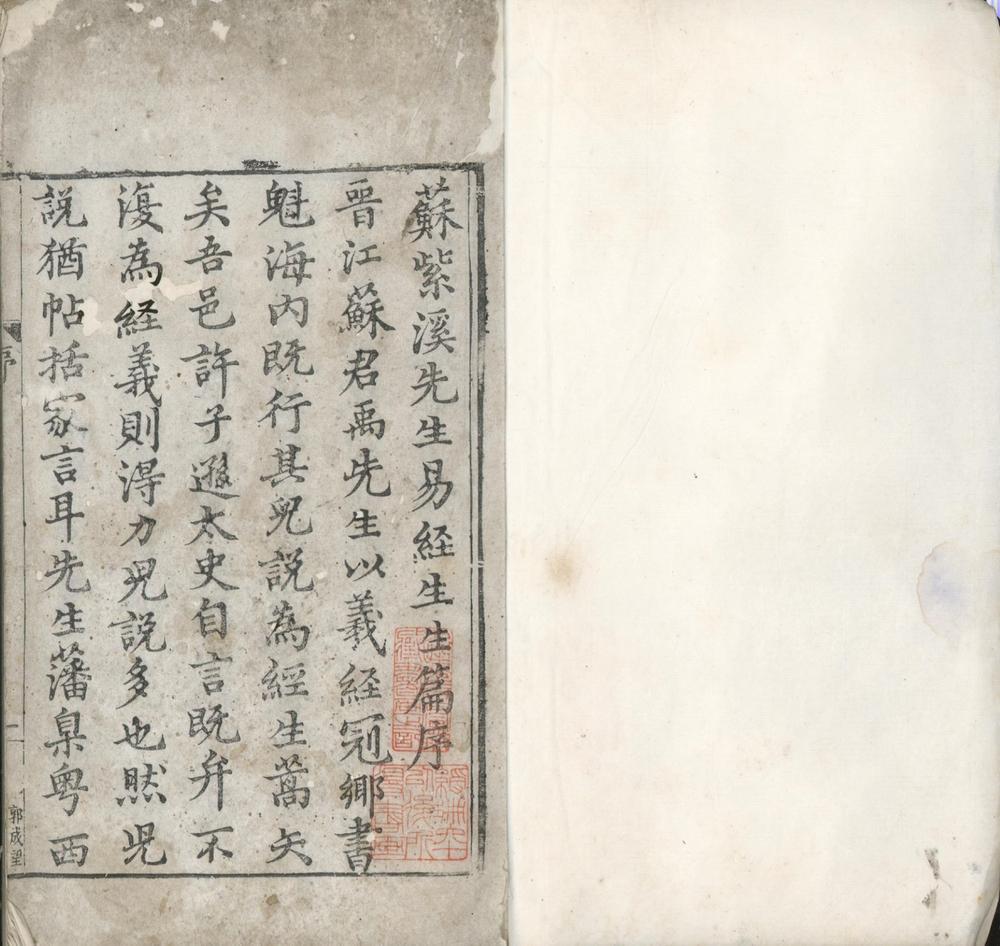 蘇紫溪先生易経生生篇序
晋江蘇君禹先生以羲経冠郷書
魁海内既行其兒説為經生蒿矢
矣吾邑許子遜太史自言既弁不
復為経義則得力兒説多也然兒
説猶帖括家言耳先生藩臬粤西
序
一
郭成望